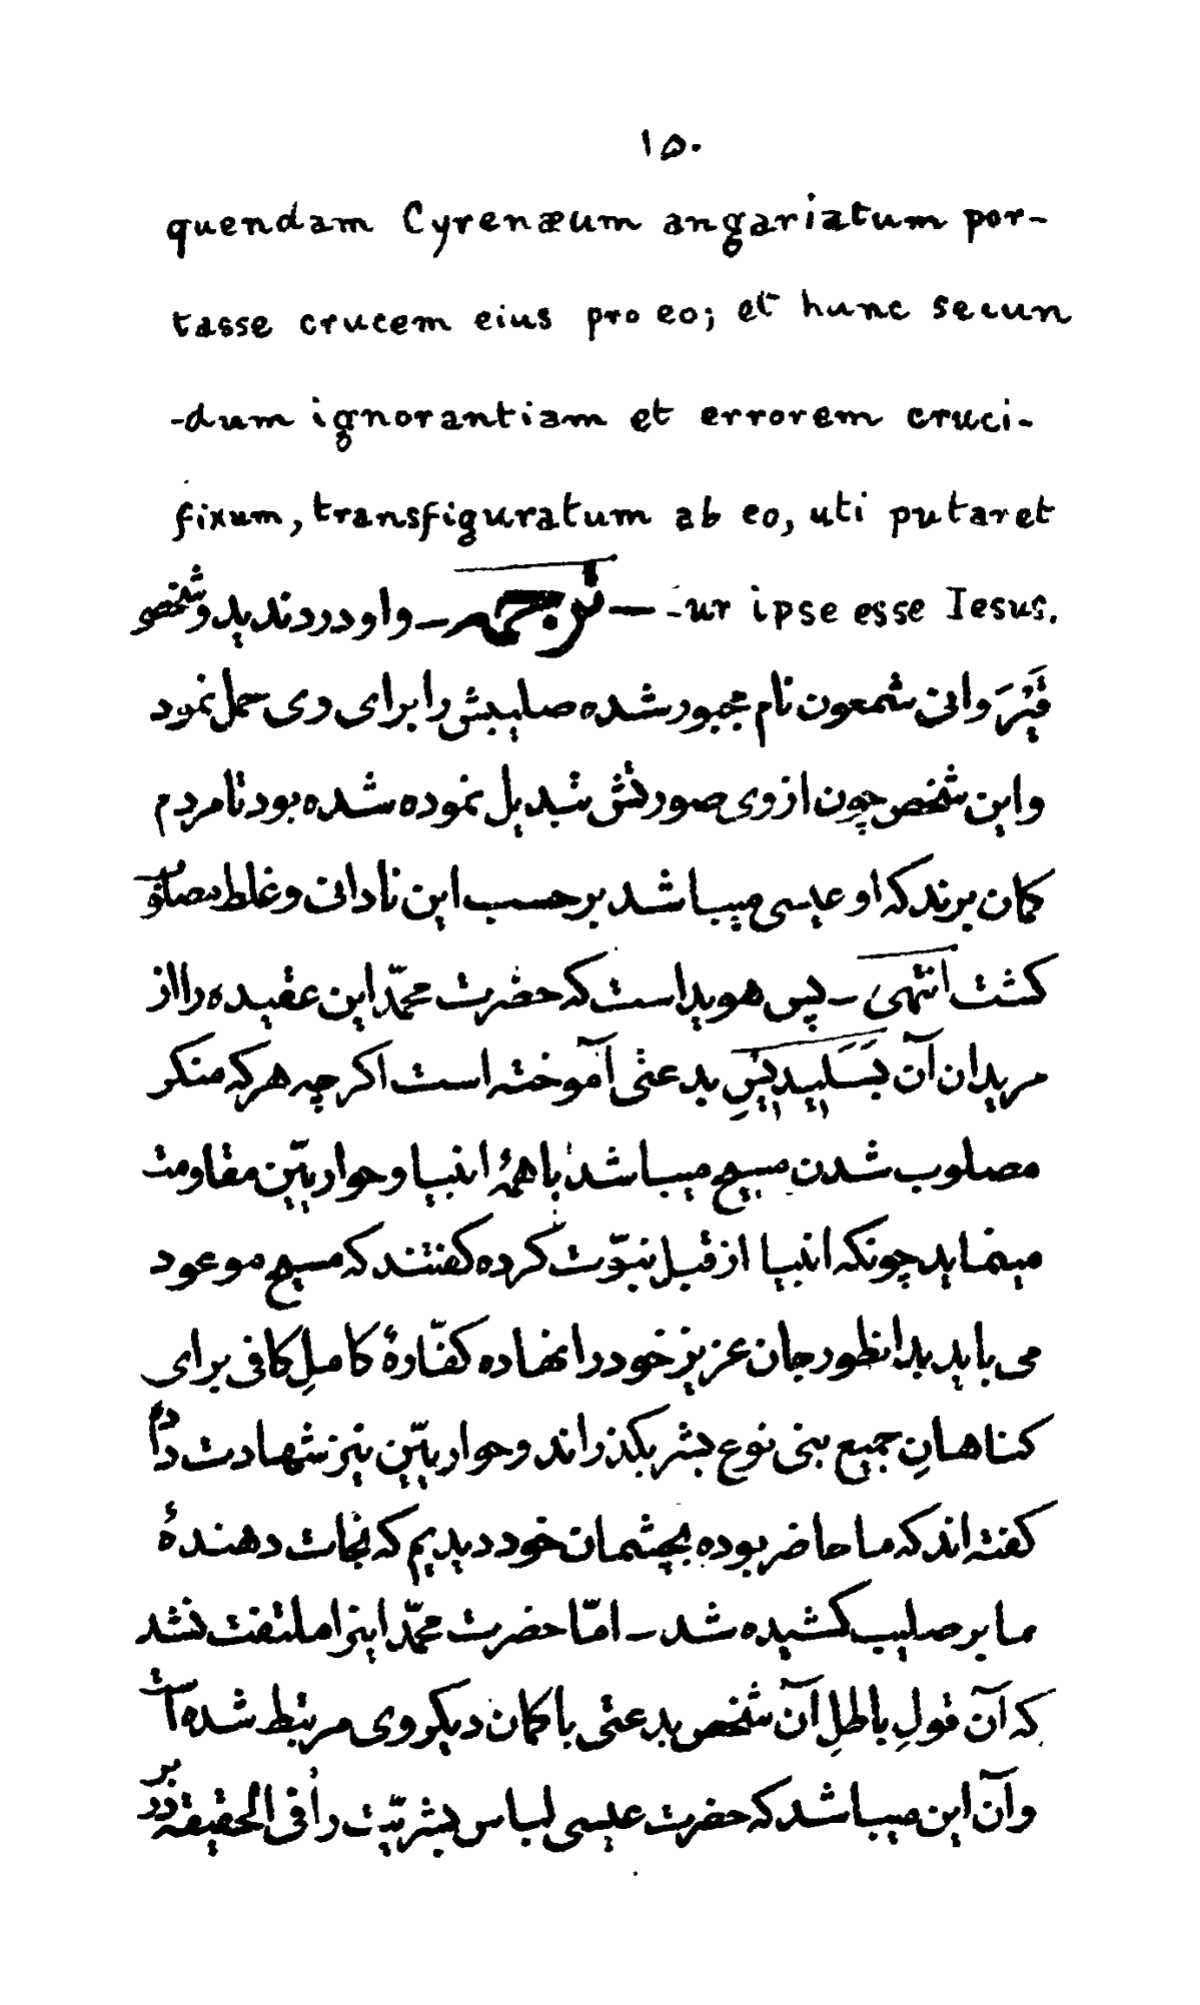 ۱۵۰
quendam Cyrenæum angariatum por-
tasse crucem eius pro eo; et hunc secun
-dum ignorantiam et errorem cruci-
fixum, transfiguratum ab eo, uti putaret
-ur ipse esse Iesus. — ترجمه — و او درد ندید و شخصی
قَیْرَوانی شمعون نام مجبور شده صلیبش را برای وی حمل نمود
و این شخص چون از وی صورتش تبدیل نموده شده بود تا مردم
کمان برند که او عیسی میباشد بر حسب این نادانی و غلط مصلوب
کشت انتهی — پس هویدا است که حضرت محمّد این عقیده را از
مریدان آن بَسَلِیدِیسِ بدعتی آموخته است اکرچه هر که منکر
مصلوب شدن مسیح میباشد با همهٔ انبیا و حواریّین مقاومت
مینماید چونکه انبیا از قبل نبوّت کرده کفتند که مسیح موعود
می باید بدانطور جان عزیز خود را نهاده کفّارهٔ کاملِ کافی برای
کناهانِ جمیع بنی نوع بشر بکذراند و حواریّین نیز شهادت داده
کفته اند که ما حاضر بوده بچشمان خود دیدیم که نجات دهندهٔ
ما بر صلیب کشیده شد — امّا حضرت محمّد اینرا ملتفت نشد
که آن قولِ باطلِ آن شخص بدعتی با کمان دیکر وی مرتبط شده است
و آن این میباشد که حضرت عیسی لباس بشریّت را فی الحقیقه در بر